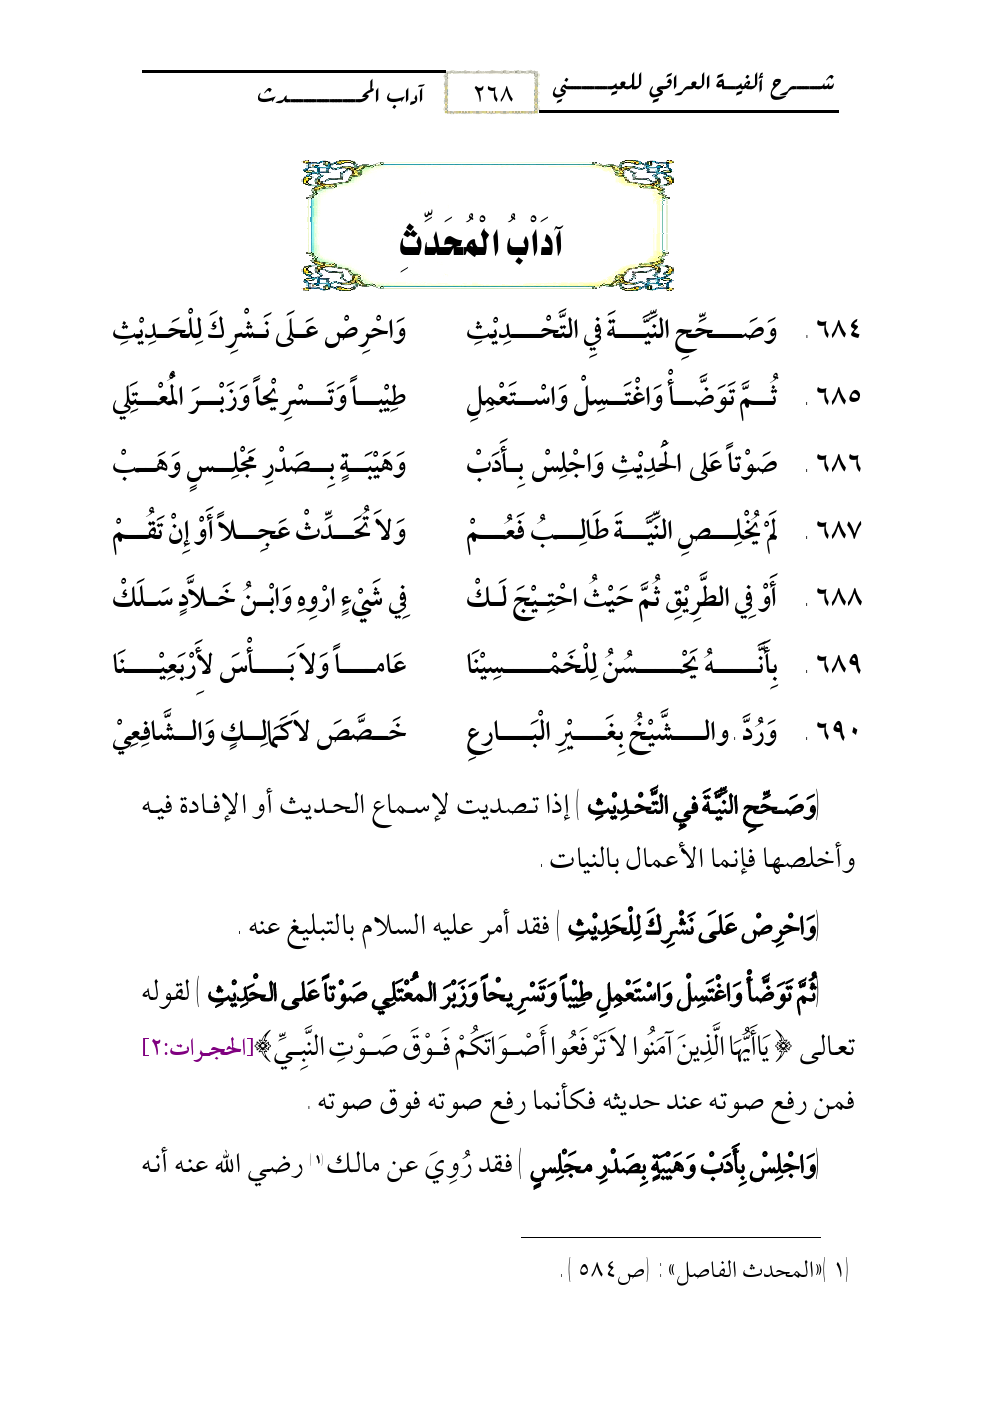 شرح ألفية العراقي للعيني ٢٦٨ آداب المحدث
آدَاْبُ الْمُحَدِّثِ
٦٨٤ . وَصَحِّحِ النِّيَّةَ فِي التَّحْدِيْثِ وَاحْرِصْ عَلَى نَشْرِكَ لِلْحَدِيْثِ
٦٨٥ . ثُمَّ تَوَضَّأْ وَاغْتَسِلْ وَاسْتَعْمِلِ طِيْباً وَتَسْرِيْحاً وَزَبْرَ الْمُعْتَلِي
٦٨٦ . صَوْتاً عَلى الْحَدِيْثِ وَاجْلِسْ بِأَدَبْ وَهَيْبَةٍ بِصَدْرِ مَجْلِسٍ وَهَبْ
٦٨٧ . لَمْ يُخْلِصِ النِّيَّةَ طَالِبُ فَعُمْ وَلاَ تُحَدِّثْ عَجِلاً أَوْ إِنْ تَقُمْ
٦٨٨ . أَوْ فِي الطَّرِيْقِ ثُمَّ حَيْثُ احْتِيْجَ لَكْ فِي شَيْءٍ ارْوِهِ وَابْنُ خَلاَّدٍ سَلَكْ
٦٨٩ . بِأَنَّهُ يَحْسُنُ لِلْخَمْسِيْنَا عَاماً وَلاَ بَأْسَ لأَرْبَعِيْنَا
٦٩٠ . وَرُدَّ . والشَّيْخُ بِغَيْرِ الْبَارِعِ خَصَّصَ لاَ كَمَالِكٍ وَالشَّافِعِيْ
(وَصَحِّحِ النِّيَّةَ فيِ التَّحْدِيْثِ ) إذا تصديت لإسماع الحديث أو الإفادة فيه
وأخلصها فإنما الأعمال بالنيات .
(وَاحْرِصْ عَلَى نَشْرِكَ لِلْحَدِيْثِ ) فقد أمر عليه السلام بالتبليغ عنه .
(ثُمَّ تَوَضَّأْ وَاغْتَسِلْ وَاسْتَعْمِلِ طِيْباً وَتَسْرِيحْاً وَزَبْرَ المُعْتَلِي صَوْتاً عَلى الحْدِيْثِ ) لقوله
تعالى ﴿ يَاأَيُّهَا الَّذِينَ آمَنُوا لاَ تَرْفَعُوا أَصْوَاتَكُمْ فَوْقَ صَوْتِ النَّبِيِّ﴾[الحجرات:٢]
فمن رفع صوته عند حديثه فكأنما رفع صوته فوق صوته .
(وَاجْلِسْ بِأَدَبْ وَهَيْبَةٍ بِصَدْرِ مجَلْسٍ ) فقد رُوِيَ عن مالك(١) رضي الله عنه أنه
(١ )«المحدث الفاصل» : (ص٥٨٤ ) .